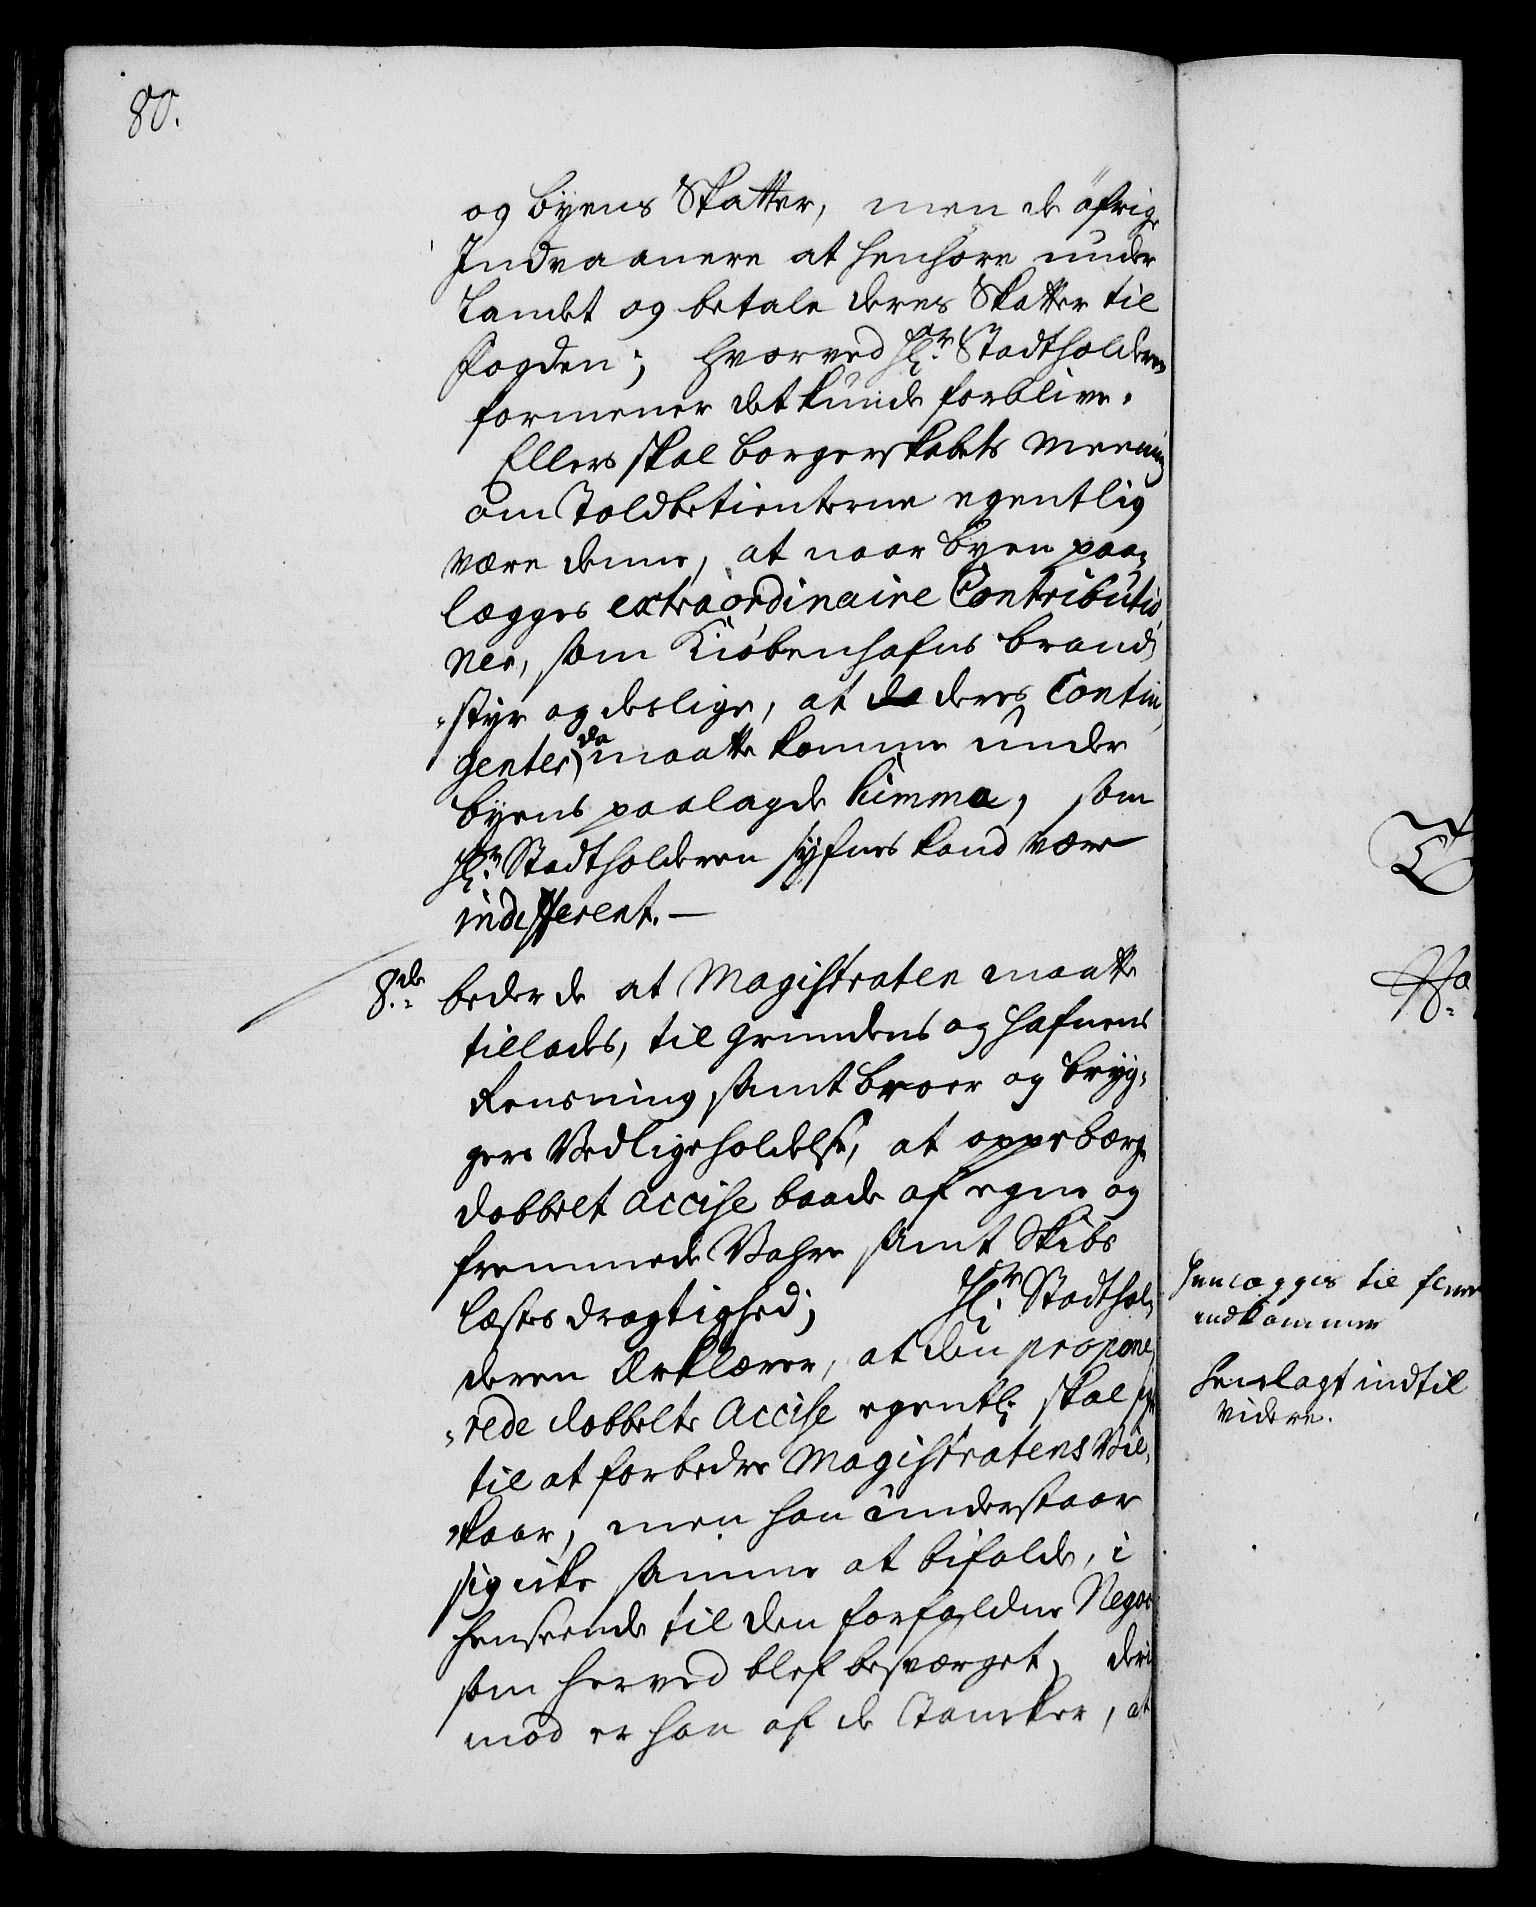 80.
og byens Skatter, men de öfrige
Indvaanere at henhøre under
Landet og betale deres Skatter til
fogden; hvorved Hr. Stadtholderen
formener det kunde forblive.
Ellers skal borgerskabets meening
om Toldbetienterne egentlig
være denne, at naar byen paa,
lægges extraordinaire Contributio,
ner, som Kiøbenhafns brand,
styr og deslige, at deres Contin,
genter da maatte komme under
byens paalagde Summa, som
Hr. Stadtholderen syfnes kand være
indifferent. —
8.de beder de at Magistraten maatte
tillades, til grundens og hafnens
Rensning, samt broer og bryg,
gers Vedligeholdelse, at oppebærge
dobbelt accise baade af egne og
fremmede Vahre samt Skibs
læsters dragtighed; Hr. Stadthol,
deren Erklærer, at den propone,
rede dobbelte Accise egentl. skal sigte
til at forbedre Magistratens Vil,
kaar, men han understaar
sig icke samme at bifalde, i
henseende til den forfaldne Negoe
som herved blef besværget, deri
mod er han af de Tancker, at
Henlægges til flere
indkommer
Henlagt indtil
videre.